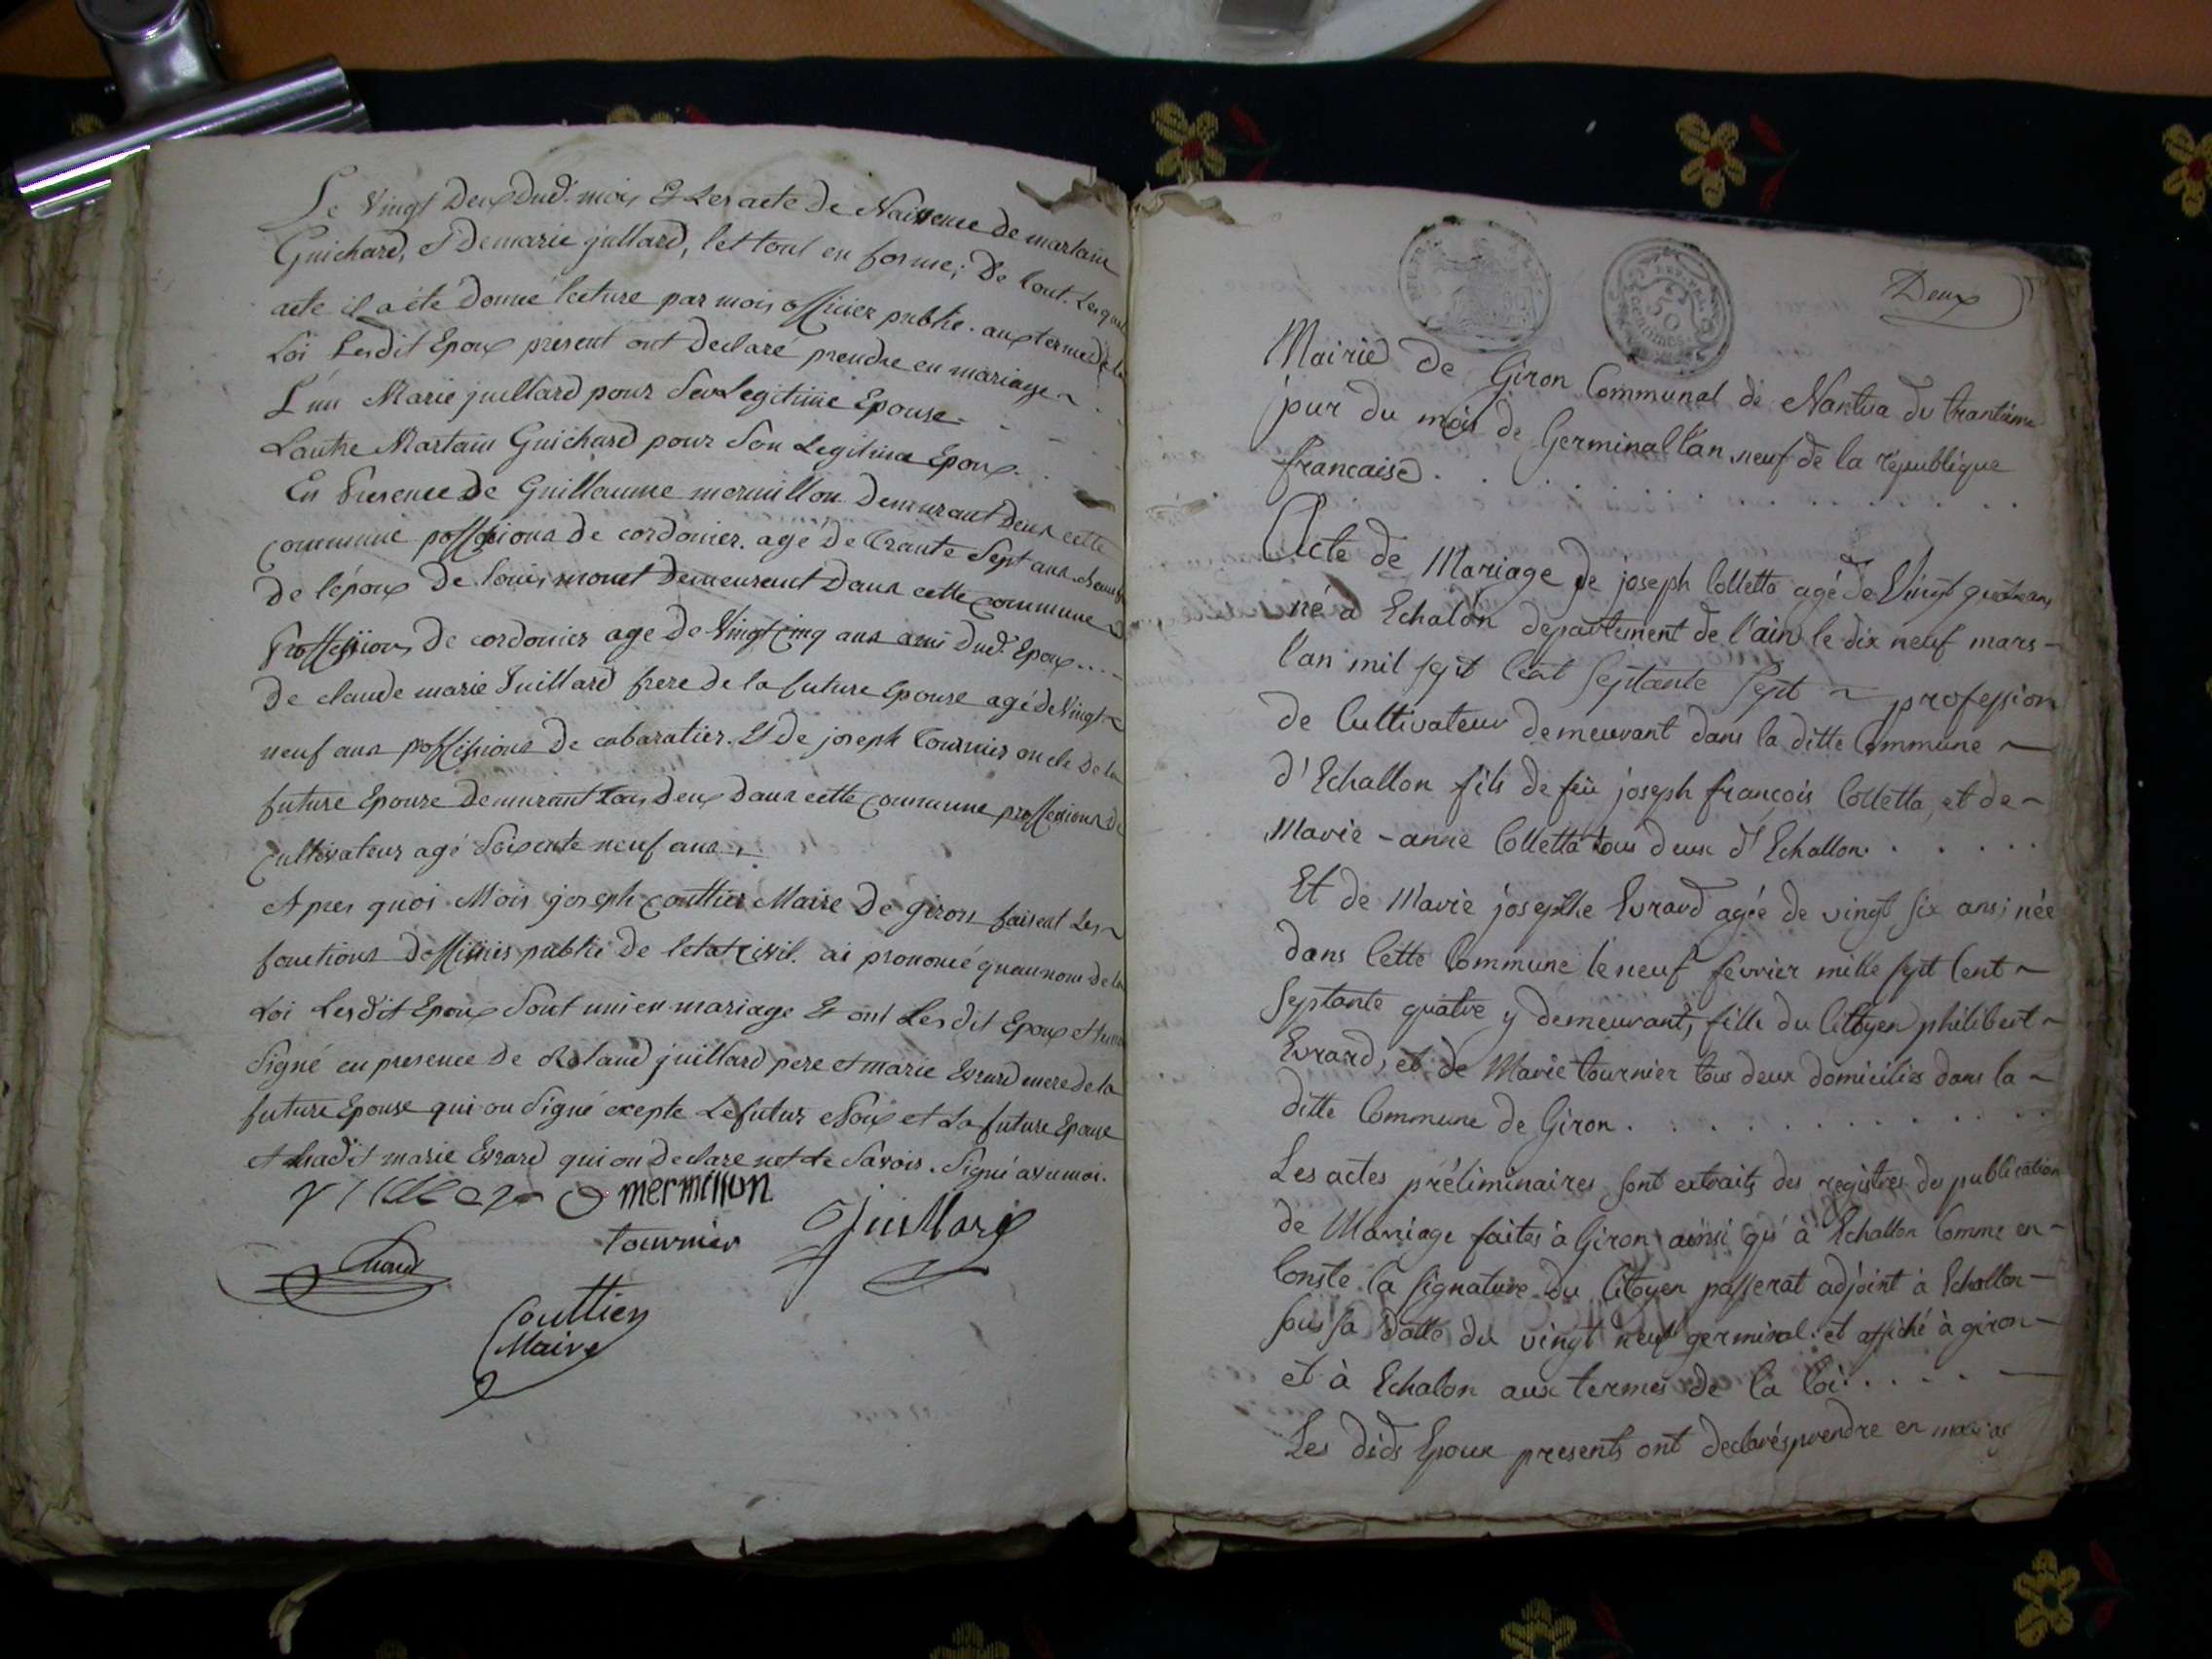 Le Vingt Deux Dud. mois Et Les acte de Naissence de martain
Guichard, et De marie juillard, let tout en forme; De tout. Les quel
acte il a été donné lecture par mois officier public. aux termes de la
Loi Lesdit Epoux présent ont Declaré prendre en mariage ~
L'un Marie juillard pour Son Legitime Epouse -
Lautre Martain Guichard pour Son Legitime Epoux.
En Presence De Guillaume mermillon Demurant Dens cette
commune de cordonier. agé De Trante Sept ans
de lépoux De louis monet Demeurent Dans cette commune
Proffession De cordonier age De Vingt cinq ans ami Dud. Epoux....
De claude marie Juillard frere De la future Epouse agé De Vingt ~
neuf ans De cabaratier. Et De joseph Tournier oncle De la
future Epouse Demurant tous Deux Dans cette commune proffessions de
cultivateur agé Soixente neuf ans.
Apres quoi Mois joseph couttier Maire De giron faisent Les ~
fonctions D'officier public De letat civil. ai prononcé qu'au nom de la
Loi Lesdit Epoux Sont uni en mariage Et ont Les dit Epoux et
Signé en presence De Roland juillard pere et marie Evrard mere de la
future Epouse qui on Signé exepte Le futur Epoux et La future Epouse
et Ladit marie Evrard qui on Declare Savoir. Signé avu moi.
G mermillon
tournier Juillard
Couttier
Maire
Deux
50 centimes
Mairie de Giron Communal de Nantua du trantieme
jour du mois de Germinal l'an neuf de la république
francaise . . . . . . . . . .
Acte de Mariage de joseph Colletta agé de Vingt quatre ans
né a Echalon departement de l'ain le dix neuf mars -
l'an mil sept Cent Septante Sept ~ profession
de Cultivateur demeurant dans la ditte Commune ~
d'Echallon fils de feu joseph françois Colletta, et de ~
Marie - anne Colletta tous deux d'Echallon. . . . . .
Et de Marie josephte Evrard agée de vingt six ans; née
dans Cette Commune le neuf fevrier mille sept Cent ~
Septante quatre y demeurant, fille du Citoyen philibert ~
Evrard, et de Marie tournier tous deux domiciliés dans la ~
ditte Commune de Giron . . . . . . . . . .
Les actes préliminaires sont extraits des registres de publication
de Mariage faites à Giron ainsi qu'à Echallon Comme en -
Conste la signature du Citoyen passerat adjoint à Echallon -
sous sa datte du vingt neuf germinal. et affiché à giron -
et à Echalon aux termes de la loi . . . . . -
Les dids Epoux presents ont declarés prendre en mariage